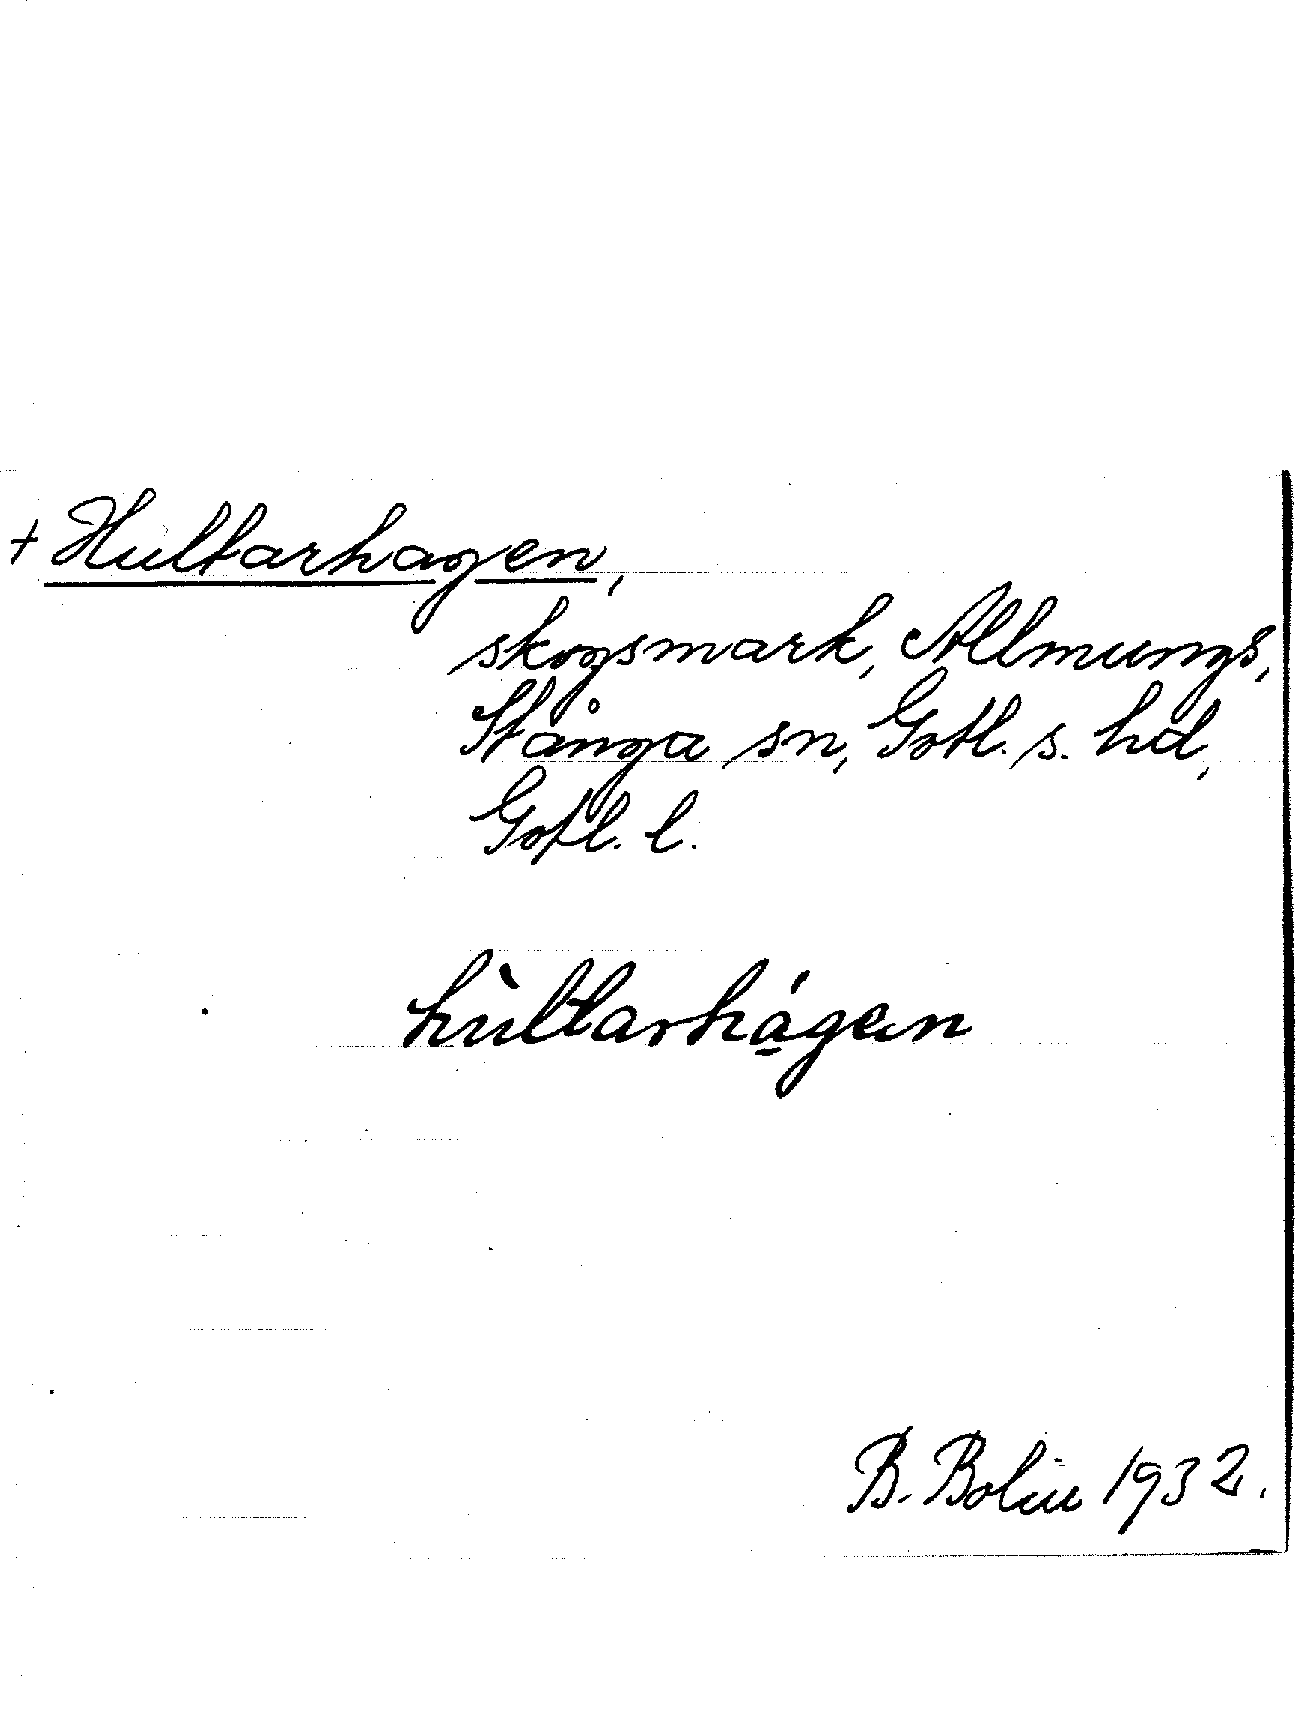 + Hultarhagen,
skogsmark, Allmungs,
Stånga sn, Gotl. s. hd,
Gotl. l.
hùltarhá̱gæn
B. Bolin 1932.